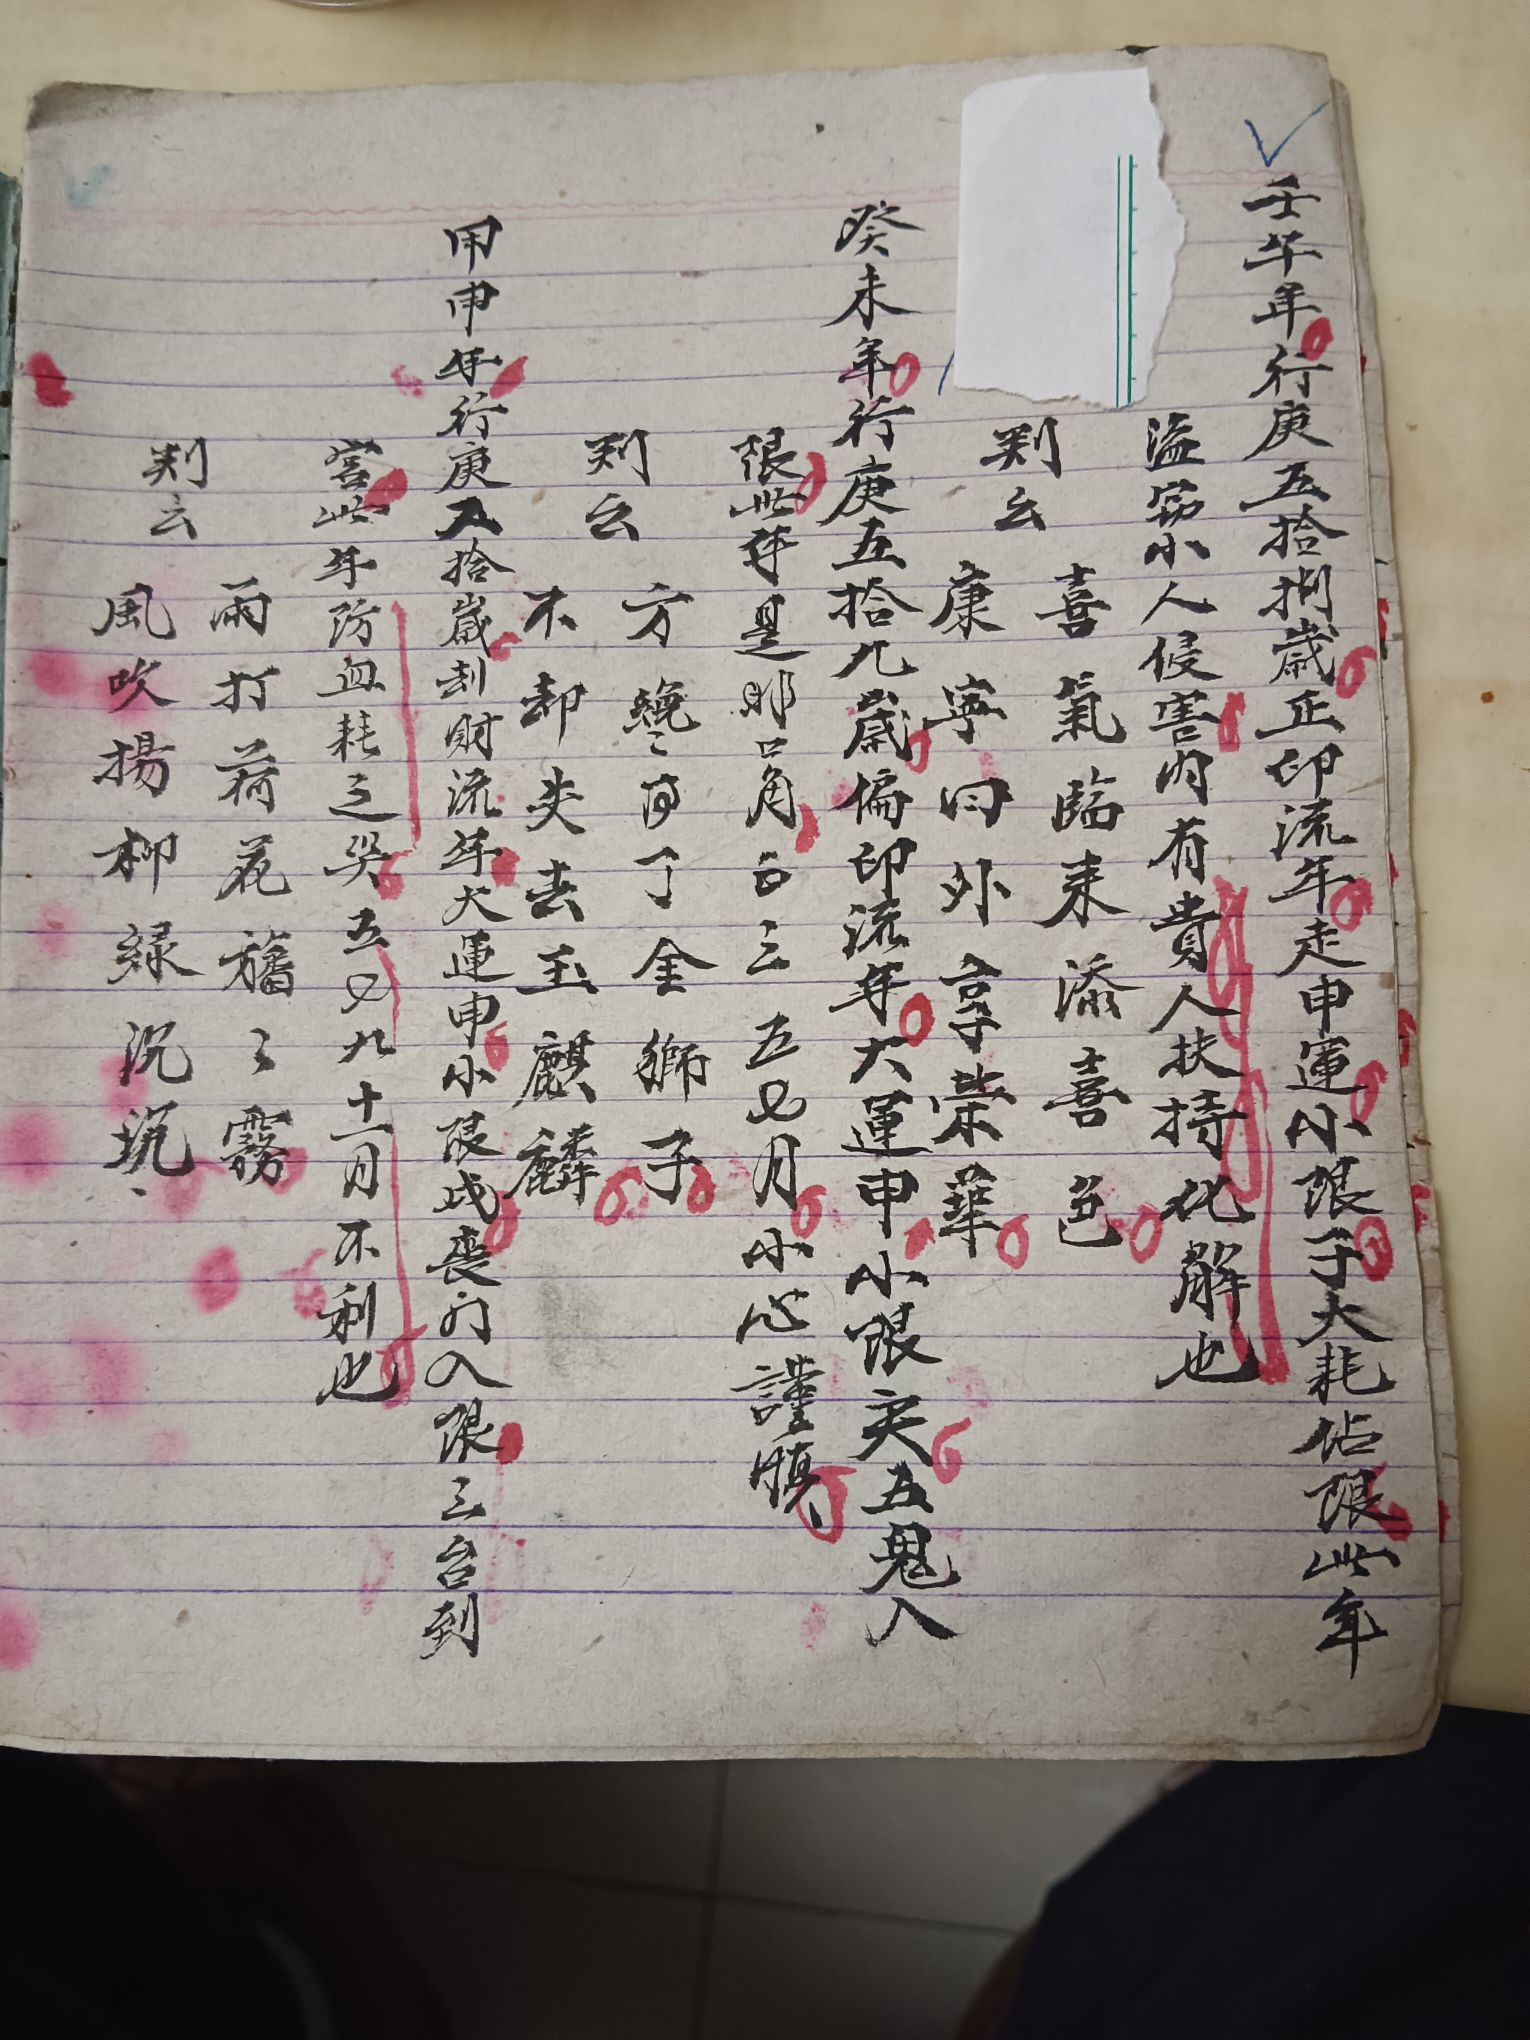 壬午年行庚五拾捌歲正印流年走申運小限子大耗佔限此年
小人侵害内有貴人扶持化解也
判云
喜氣臨來添喜色
康寧日外享榮華
癸未年行庚五拾九歲偏印流年大運申小限亥五鬼入
限此年是非口角正三五七月小心謹慎
判云
方纔了金獅子
不卻失去玉麒麟
甲申年行庚六拾歲刦財流年大運申小限戌喪门入限三台到
宮此年防血耗之哭五七九十一月不利也
判云
雨打荷花霧
風吹揚柳綠沉沉